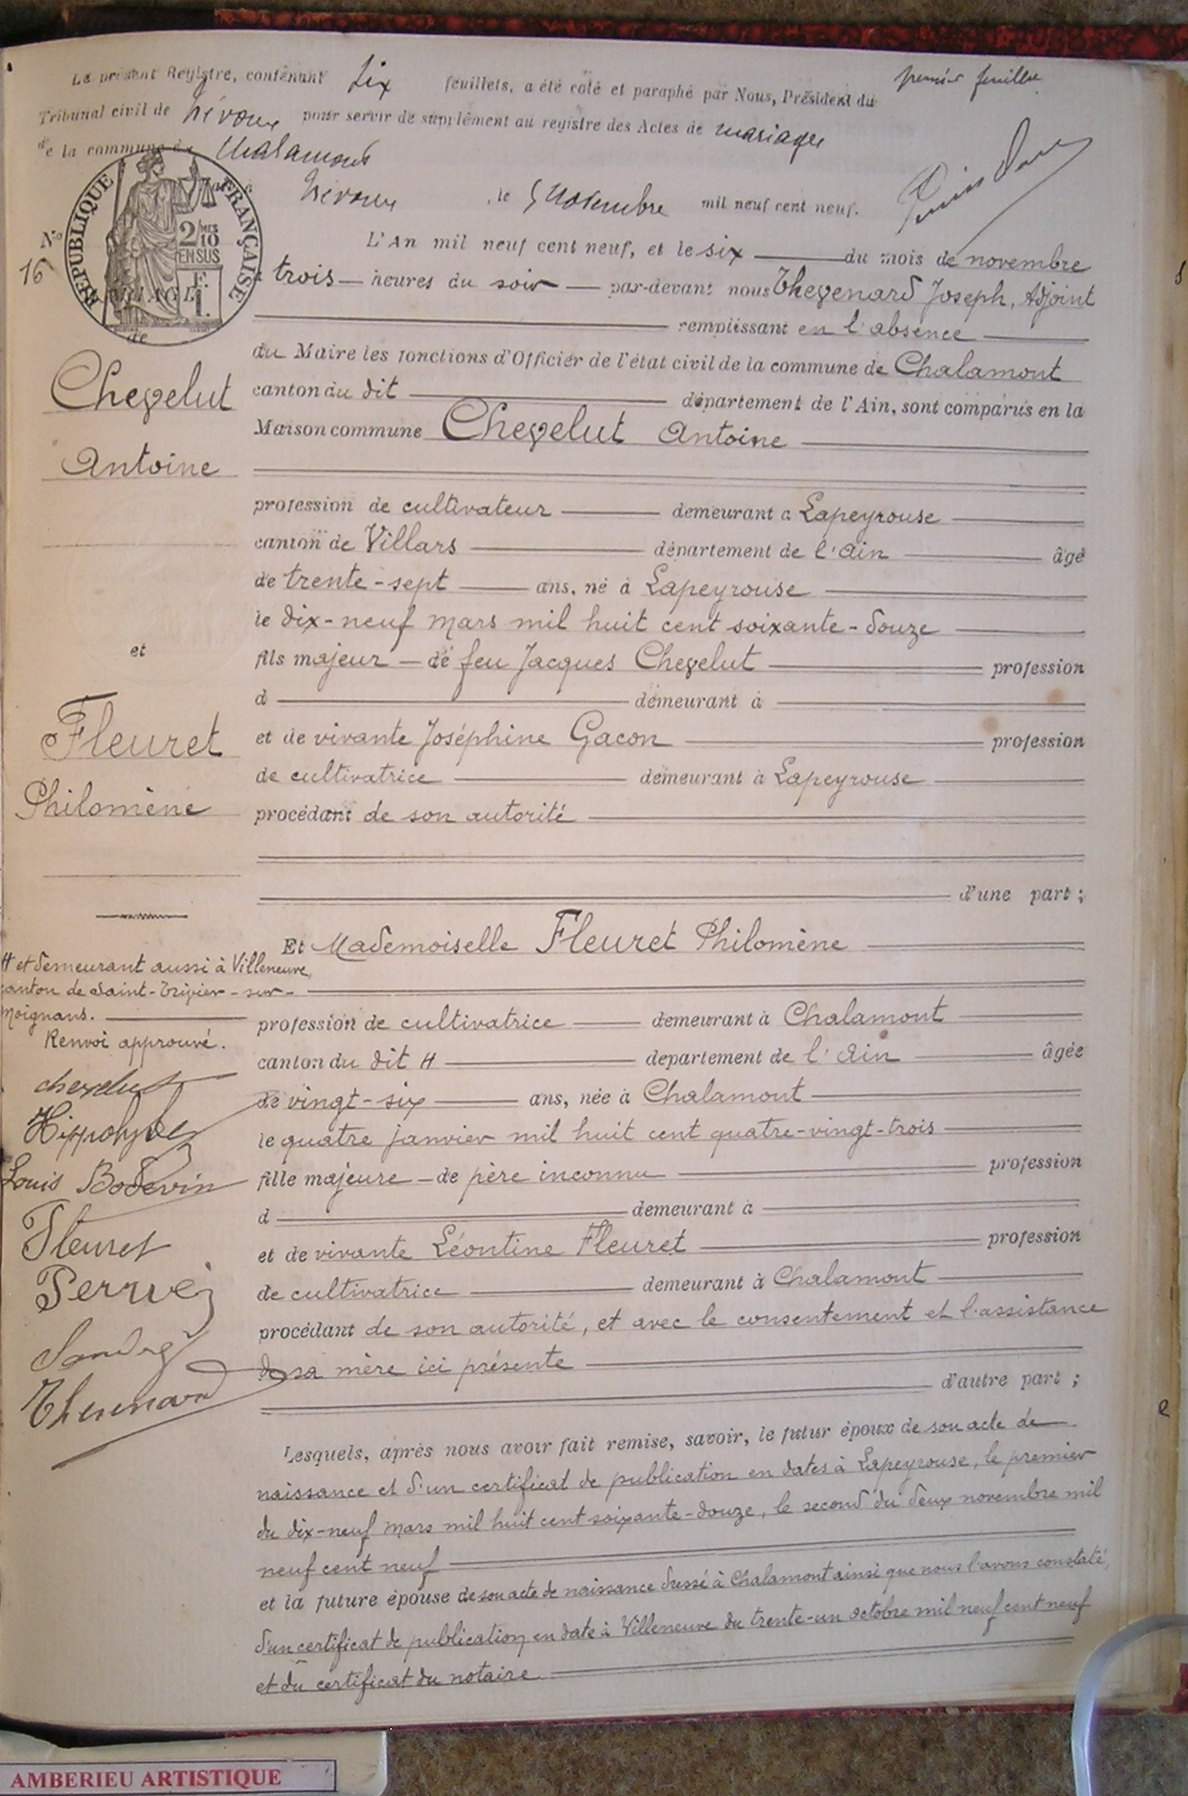 premier feuillet
Le présent Registre, contenant six feuillets, a été coté et paraphé par Nous, Président du
Tribunal civil de Trévoux pour servir de supplément au registre des Actes de mariages
de la commune de Chalamont
Trévoux, le 5 novembre mil neuf cent neuf.
No
16
RÉPUBLIQUE FRANÇAISE
2/10
MES
EN SUS
MARIAGE
de
Chevelut
Antoine
et
Fleuret
Philomène
L'An mil neuf cent neuf, et le six du mois de novembre
trois heures du soir par-devant nous Thevenard Joseph, Adjoint
remplissant en l'absence
du Maire les fonctions d'Officier de l'état civil de la commune de Chalamont
canton du dit département de l'Ain, sont comparus en la
Maison commune Chevelut Antoine
profession de cultivateur demeurant à Lapeyrouse
canton de Villars département de l'Ain âgé
de trente-sept ans, né à Lapeyrouse
le dix-neuf mars mil huit cent soixante-douze
fils majeur de feu Jacques Chevelut profession
d demeurant à
et de vivante Joséphine Gacon profession
de cultivatrice demeurant à Lapeyrouse
procédant de son autorité
d'une part ;
Et Mademoiselle Fleuret Philomène
profession de cultivatrice demeurant à Chalamont
canton du dit H département de l'Ain âgée
de vingt-six ans, née à Chalamont
le quatre janvier mil huit cent quatre-vingt-trois
fille majeure de père inconnu profession
d demeurant à
et de vivante Léontine Fleuret profession
de cultivatrice demeurant à Chalamont
procédant de son autorité, et avec le consentement et l'assistance
de sa mère ici présente
d'autre part ;
H et demeurant aussi à Villeneuve,
canton de Saint-Trivier-sur-
Moignans.
Renvoi approuvé.
Chevelut
Hippolyte
Louis Bodevin
Fleuret
Perruez
Thevenard
Lesquels, après nous avoir fait remise, savoir, le futur époux de son acte de
naissance et d'un certificat de publication en dates à Lapeyrouse, le premier
du dix-neuf mars mil huit cent soixante-douze, le second du deux novembre mil
neuf cent neuf
et la future épouse de son acte de naissance dressé à Chalamont ainsi que nous l'avons constaté,
d'un certificat de publication en date à Villeneuve du trente-un octobre mil neuf cent neuf
et du certificat du notaire.
AMBERIEU ARTISTIQUE